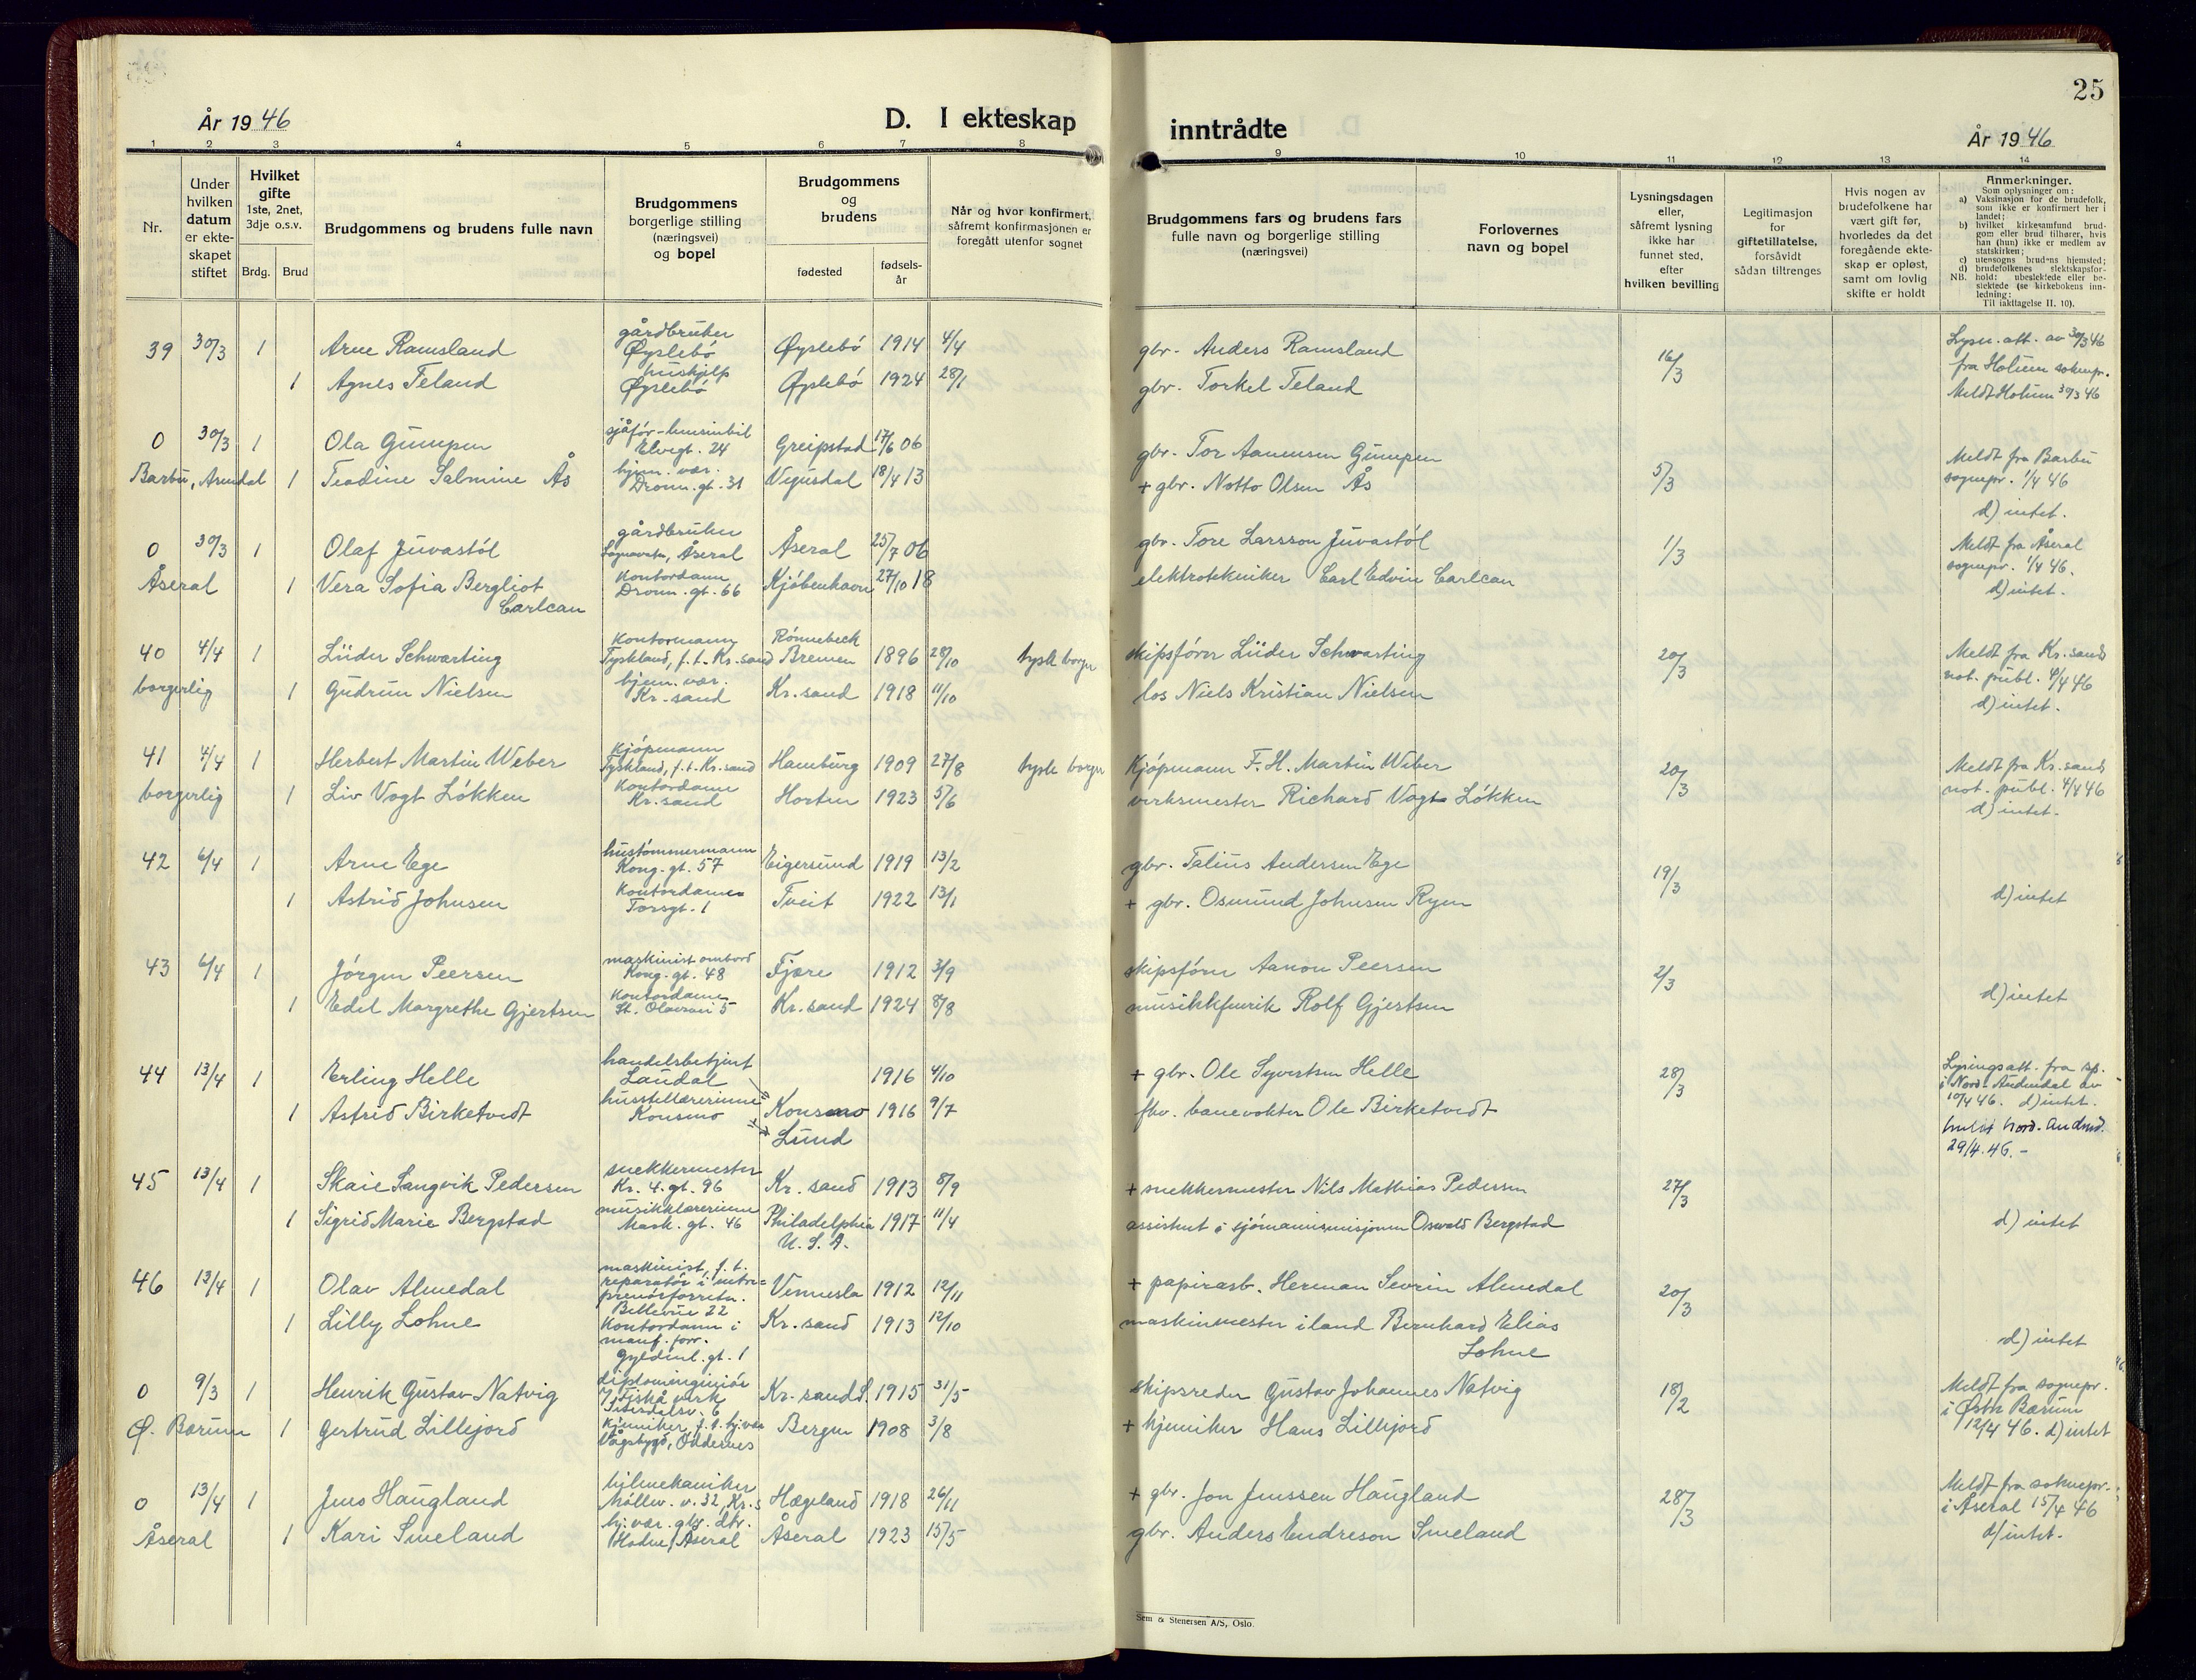 25
År 1946
D. I ekteskap
inntrådte
År 1946
1 2 3 4 5 6 7 8 9 10 11 12 13 14
Nr.
Under
hvilken
datum
er ekte-
skapet
stiftet
Hvilket
gifte
1ste, 2net,
3dje o.s.v.
Brdg. Brud
Brudgommens og brudens fulle navn
Brudgommens
borgerlige stilling
(næringsvei)
og bopel
Brudgommens
og
brudens
fødested
fødsels-
år
Når og hvor konfirmert,
såfremt konfirmasjonen er
foregått utenfor sognet
Brudgommens fars og brudens fars
fulle navn og borgerlige stilling
(næringsvei)
Forlovernes
navn og bopel
Lysningsdagen
eller,
såfremt lysning
ikke har
funnet sted,
efter
hvilken bevilling
Legitimasjon
for
giftetillatelse,
forsåvidt
sådan tiltrenges
Hvis nogen av
brudefolkene har
vært gift før,
hvorledes da det
foregående ekte-
skap er opløst,
samt om lovlig
skifte er holdt
Anmerkninger.
Som oplysninger om:
a) Vaksinasjon for de brudefolk,
som ikke er konfirmert her i
landet;
b) hvilket kirkesamfund brud-
gom eller brud tilhører, hvis
han (hun) ikke er medlem av
statskirken;
c) utensogns brudens hjemsted;
d) brudefolkenes slektskapsfor-
hold: ubeslektede eller be-
slektede (se kirkebokens inn-
ledning:
NB. Til iakttagelse II. 10).
39 30/3 1 Arne Ramsland gårdbruker Øyslebö Øyslebö 1914 4/4 gbr. Anders Ramsland 16/3 Lysn. att. av 30/3 46
1 Agnes Teland hushjelp Øyslebö Øyslebö 1924 28/1 gbr. Torkel Teland fra Holum soknepr.
Meldt Holum 30/3 46
0 30/3 1 Ola Gumpen sjåför Elvegt. 24 Greipstad 17/6 06 gbr. Tor Aanensen Gumpen 5/3 Meldt fra Barbu
Barbu, Arendal 1 Teodine Salmine Ås hjem. vær. Dronn. gt. 31 Vegusdal 18/4 13 + gbr. Notto Olsen Ås sognepr. 1/4 46
d) intet.
0 30/3 1 Olaf Juvastöl gårdbruker Åseral Åseral 25/7 06 gbr. Tore Larsson Juvastöl 1/3 Meldt fra Åseral
Åseral 1 Vera Sofia Bergliot Kontordame Dronn. gt. 66 Kjöbenhavn 27/10 18 elektrotekniker Carl Edvin Carlcan sognepr. 1/4 46.
Carlcan d) intet.
40 4/4 1 Lüder Schwarting Kontormann Tyskland, f.t. Kr.sand Rönnebeck Bremen 1896 28/10 tysk borger skipsförer Lüder Schwarting 20/3 Meldt fra Kr.sands
borgerlig 1 Gudrun Nielsen hjem. vær. Kr.sand Kr.sand 1918 11/10 los Niels Kristian Nielsen not. publ. 4/4 46
d) intet.
41 4/4 1 Herbert Martin Weber Kjöpmann Tyskland, f.t. Kr.sand Hamburg 1909 27/8 tysk borger Kjöpmann F. H. Martin Weber 20/3 Meldt fra Kr.sands
borgerlig 1 Liv Vogt Lökken Kontordame Kr.sand Horten 1923 5/6 verksmester Richard Vogt Lökken not. publ. 4/4 46
d) intet.
42 6/4 1 Arne Ege hustömmermann Kong. gt. 57 Eigersund 1919 13/2 gbr. Talius Andersen Ege 19/3
1 Astrid Johnsen Kontordame Torsgt. 1 Tveit 1922 13/1 + gbr. Osmund Johnsen Ryen d) intet
43 6/4 1 Jörgen Peersen maskinist ombord Kong. gt. 48 Fjære 1912 3/9 skipsförer Aanon Peersen 2/3
1 Edel Margrethe Gjertsen Kontordame St. Olavsvei 5 Kr.sand 1924 8/8 musikkfenrik Rolf Gjertsen d) intet
44 13/4 1 Erling Helle handelsbetjent Laudal 1916 4/10 + gbr. Ole Syvertsen Helle 28/3 Lysingsatt. fra sp.
1 Astrid Birketvedt husstellærerinne Konsmo Konsmo 1916 9/7 fhv. banevokter Ole Birketvedt i Nord-Audnedal av
Lund 10/4 46. d) intet.
meldt Nord. Audned.
29/4.46.-
45 13/4 1 Skaie Langvik Pedersen snekkermester Kr. 4. gt. 96 Kr.sand 1913 8/9 + snekkermester Nils Mathias Pedersen 27/3
1 Sigrid Marie Bergstad musikklærerinne Mark. gt. 46 Philadelphia U.S.A. 1917 11/4 assistent i sjömannsmisjonen Oswald Bergstad d) intet
46 13/4 1 Olav Almedal maskinist, f.t. reparatör i entre=prenörforretn. Bellevue 22 Vennesla 1912 12/11 + papirarb. Herman Severin Almedal 20/3
1 Lilly Lohne Kontordame i manuf. forr. Gyldenl. gt. 1 Kr.sand 1913 12/10 maskinmester iland Bernhard Elias
Lohne d) intet
0 9/3 1 Henrik Gustav Natvig diplomingeniör v/ Fiskå verk Setesdalsv. 6 Kr.sand S. 1915 31/5 skipsreder Gustav Johannes Natvig 18/2 Meldt fra sognepr.
Ø. Bærum 1 Gertrud Lillejord Kjemiker, f.t. hj. vær Vågsbygd, Oddernes Bergen 1908 3/8 + kjemiker Hans Lillejord i Östre Bærum
12/4 46. d) intet
0 13/4 1 Jens Haugland bilmekaniker Möllev. v. 32, Kr.s Hægeland 1918 26/11 + gbr. Jon Jenssen Haugland 28/3 Meldt fra soknepr.
Åseral 1 Kari Smeland hj. vær. gbr. dtr. Åseral Åseral 1923 15/5 gbr. Anders Endreson Smeland i Åseral 15/4 46
d) intet.
Sem & Stenersen A/S, Oslo.